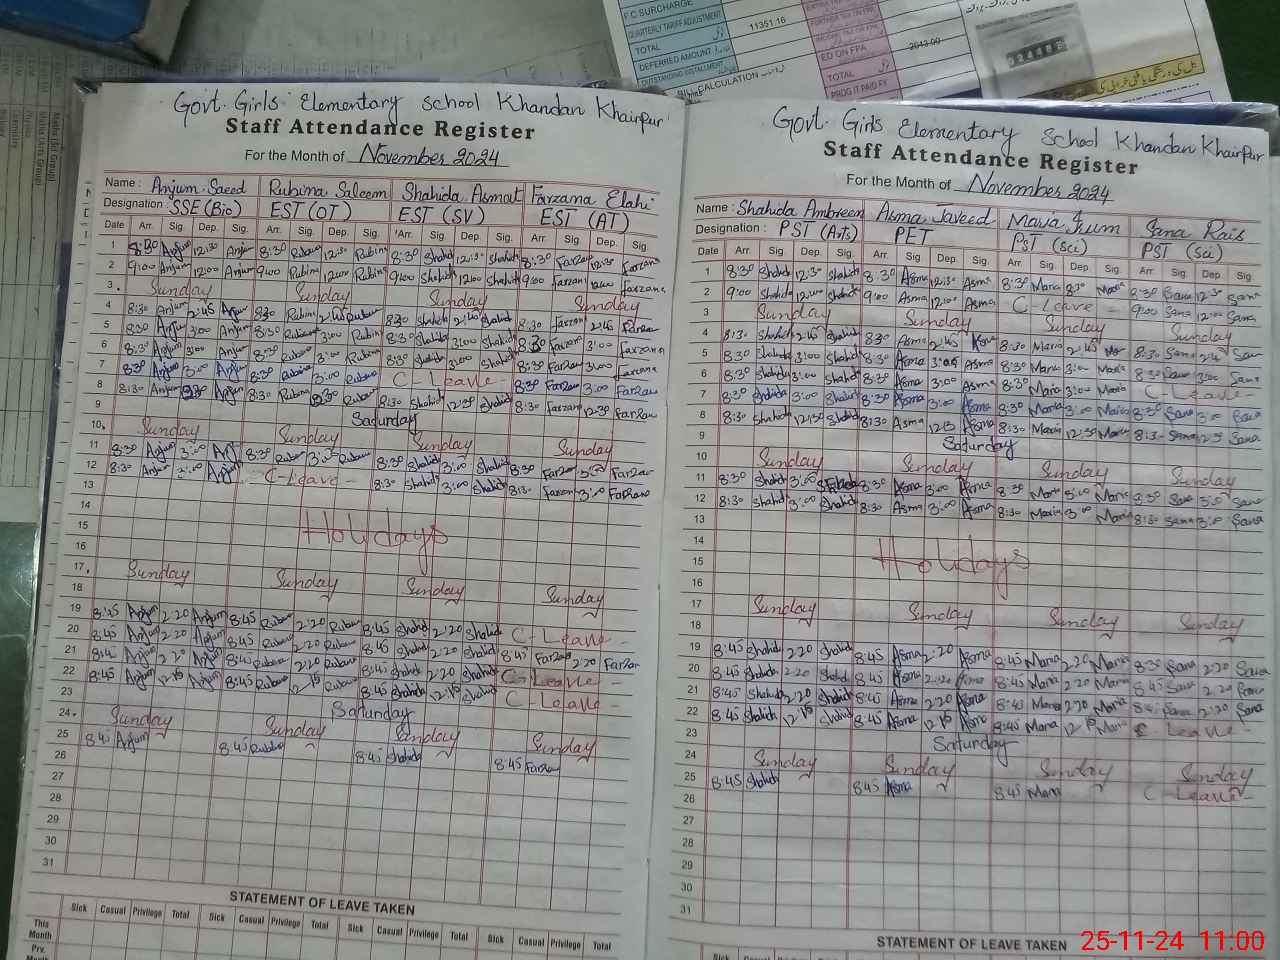 F.C SURCHARGE
QUARTERLY TARIFF ADJUSTMENT
TOTAL
11351.16
DEFERRED AMOUNT
OUTSTANDING INSTALLMENT
BILL CALCULATION
ED ON FPA
2013.00
TOTAL
PROG IT PAID FY
Govt. Girls Elementary School Khandan Khairpur
Staff Attendance Register
For the Month of November 2024
Name : Anjum Saeed Rubina Saleem Shahida Asmat Farzana Elahi
Designation : SSE (Bio) EST (OT) EST (SV) EST (AT)
Date Arr. Sig. Dep. Sig. Arr. Sig. Dep. Sig. Arr. Sig. Dep. Sig. Arr. Sig. Dep. Sig.
1 8:30 Anjum 12:30 Anjum 8:30 Rubina 12:30 Rubina 8:30 Shahid 12:30 Shahid 8:30 Farzan 12:30 Farzana
2 9:00 Anjum 12:00 Anjum 9:00 Rubina 12:00 Rubina 9:00 Shahid 12:00 Shahid 9:00 Farzan 12:00 Farzana
3 Sunday Sunday Sunday Sunday
4 8:30 Anjum 2:45 Anjum 8:30 Rubina 2:45 Rubina 8:30 Shahid 2:45 Shahid 8:30 Farzan 2:45 Farzan
5 8:30 Anjum 3:00 Anjum 8:30 Rubina 3:00 Rubina 8:30 Shahid 3:00 Shahid 8:30 Farzan 3:00 Farzana
6 8:30 Anjum 3:00 Anjum 8:30 Rubina 3:00 Rubina 8:30 Shahid 3:00 Shahid 8:30 Farzan 3:00 Farzana
7 8:30 Anjum 3:00 Anjum 8:30 Rubina 3:00 Rubina C-Leave- 8:30 Farzan 3:00 Farzan
8 8:30 Anjum Anjum 8:30 Rubina Rubina 8:30 Shahid 12:30 Shahid 8:30 Farzan 12:30 Farzan
9 Saturday
10 Sunday Sunday Sunday Sunday
11 8:30 Anjum 3:00 Anj 8:30 Rubina 3:00 Rubina 8:30 Shahid 3:00 Shahid 8:30 Farzan 3:00 Farzan
12 8:30 Anjum 3:00 Anjum C-Leave- 8:30 Shahid 3:00 Shahid 8:30 Farzan 3:00 Farzan
13
14
15 Holidays
16
17 Sunday Sunday Sunday Sunday
18
19 8:45 Anjum 2:20 Anjum 8:45 Rubina 2:20 Rubina 8:45 Shahid 2:20 Shahid C-Leave-
20 8:45 Anjum 2:20 Anjum 8:45 Rubina 2:20 Rubina 8:45 Shahid 2:20 Shahid 8:45 Farzan 2:20 Farzan
21 8:45 Anjum 2:20 Anjum 8:45 Rubina 2:20 Rubina 8:45 Shahid 2:20 Shahid C-Leave-
22 8:45 Anjum 12:15 Anjum 8:45 Rubina 12:15 Rubina 8:45 Shahid 12:15 Shahid C-Leave-
23 Saturday
24 Sunday Sunday Sunday Sunday
25 8:45 Anjum 8:45 Rubina 8:45 Shahid 8:45 Farzan
26
27
28
29
30
31
STATEMENT OF LEAVE TAKEN
Sick Casual Privilege Total Sick Casual Privilege Total Sick Casual Privilege Total Sick Casual Privilege Total
This Month
Prv. Month
Govt. Girls Elementary School Khandan Khairpur
Staff Attendance Register
For the Month of November 2024
Name : Shahida Ambreen Asma Javeed Maria Irum Sana Rais
Designation : PST (Arts) PET PST (sci) PST (sci)
Date Arr. Sig. Dep. Sig. Arr. Sig. Dep. Sig. Arr. Sig. Dep. Sig. Arr. Sig. Dep. Sig.
1 8:30 Shahid 12:30 Shahid 8:30 Asma 12:30 Asma 8:30 Maria Maria 8:30 Sana 12:30 Sana
2 9:00 Shahid 12:00 Shahid 9:00 Asma 12:00 Asma C-Leave- 9:00 Sana 12:00 Sana
3 Sunday Sunday Sunday Sunday
4 8:30 Shahid 2:45 Shahid 8:30 Asma 2:45 Asma 8:30 Maria 2:45 8:30 Sana 2:45 Sana
5 8:30 Shahid 3:00 Shahid 8:30 Asma 3:00 Asma 8:30 Maria 3:00 Maria 8:30 Sana 3:00 Sana
6 8:30 Shahid 3:00 Shahid 8:30 Asma 3:00 Asma 8:30 Maria 3:00 Maria C-Leave-
7 8:30 Shahida 3:00 Shahid 8:30 Asma 3:00 Asma 8:30 Maria 3:00 Maria 8:30 Sana 3:00 Sana
8 8:30 Shahid 12:30 Shahid 8:30 Asma 12:30 Asma 8:30 Maria 12:30 Maria 8:30 Sana 12:30 Sana
9 Saturday
10 Sunday Sunday Sunday Sunday
11 8:30 Shahid 3:00 Shahid 8:30 Asma 3:00 Asma 8:30 Maria 3:00 Maria 8:30 Sana 3:00 Sana
12 8:30 Shahid 3:00 Shahid 8:30 Asma 3:00 Asma 8:30 Maria 3:00 Maria 8:30 Sana 3:00 Sana
13
14
15 Holidays
16
17 Sunday Sunday Sunday Sunday
18
19 8:45 Shahid 2:20 Shahid 8:45 Asma 2:20 Asma 8:45 Maria 2:20 Maria 8:30 Sana 2:20 Sana
20 8:45 Shahid 2:20 Shahid 8:45 Asma 2:20 Asma 8:45 Maria 2:20 Maria 8:45 Sana 2:20 Sana
21 8:45 Shahid 2:20 Shahid 8:45 Asma 2:20 Asma 8:45 Maria 2:20 Maria 8:45 Sana 2:20 Sana
22 8:45 Shahid 12:15 Shahid 8:45 Asma 12:15 Asma 8:45 Maria 12:15 Maria C-Leave-
23 Saturday
24 Sunday Sunday Sunday Sunday
25 8:45 Shahid 8:45 Asma 8:45 Maria C-Leave-
26
27
28
29
30
31
STATEMENT OF LEAVE TAKEN
25-11-24 11:00